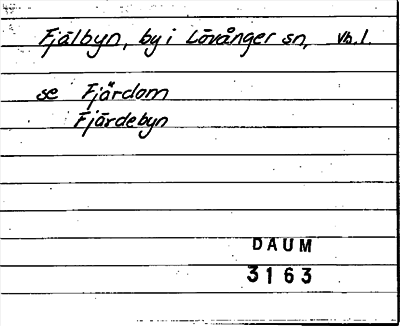 Fjälbyn, by i Lövånger sn, Vb.l.
se Fjärdom
Fjärdebyn
DAUM
3163